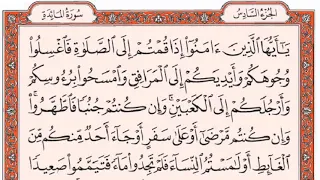 الجزء السادس سورة المائدة
يَٰٓأَيُّهَا ٱلَّذِينَ ءَامَنُوٓا۟ إِذَا قُمْتُمْ إِلَى ٱلصَّلَوٰةِ فَٱغْسِلُوا۟
وُجُوهَكُمْ وَأَيْدِيَكُمْ إِلَى ٱلْمَرَافِقِ وَٱمْسَحُوا۟ بِرُءُوسِكُمْ
وَأَرْجُلَكُمْ إِلَى ٱلْكَعْبَيْنِ ۚ وَإِن كُنتُمْ جُنُبًا فَٱطَّهَّرُوا۟ ۚ
وَإِن كُنتُم مَّرْضَىٰٓ أَوْ عَلَىٰ سَفَرٍ أَوْ جَآءَ أَحَدٌ مِّنكُم مِّنَ
ٱلْغَآئِطِ أَوْ لَٰمَسْتُمُ ٱلنِّسَآءَ فَلَمْ تَجِدُوا۟ مَآءً فَتَيَمَّمُوا۟ صَعِيدًا